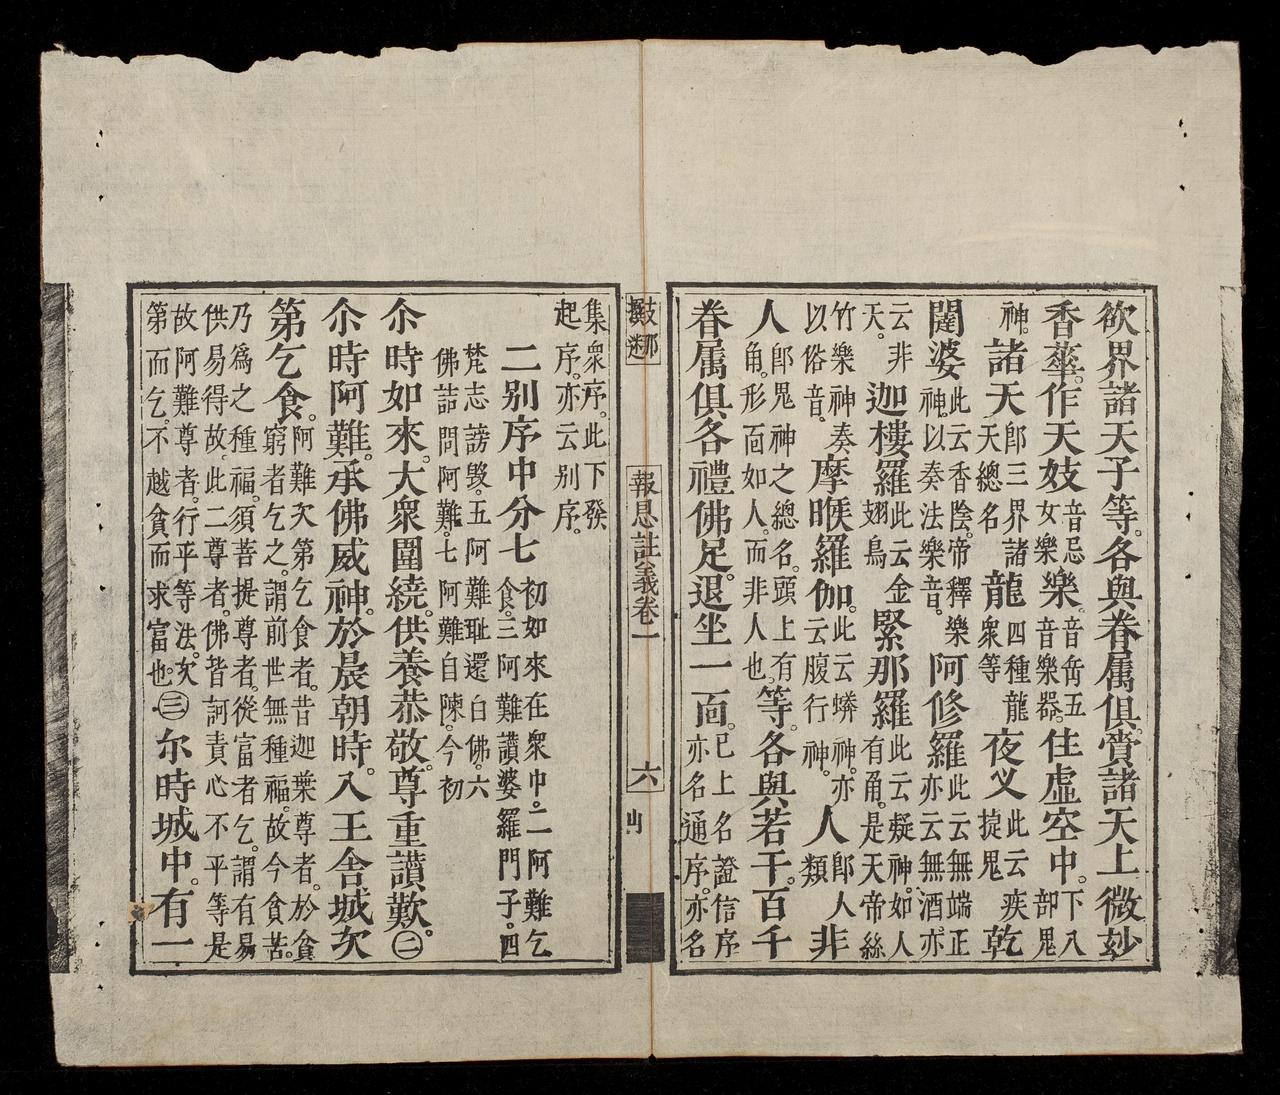 欲界諸天子等。各與眷属俱。賫諸天上微妙
香華。作天妓音忌女樂樂。音岳五音樂器。住虛空中。下八部鬼
神。諸天郎三界諸天總名龍四種龍衆等夜义此云疾揵鬼乾
闥婆此云香陰。帝釋樂神。以奏法樂音。阿修羅此云無端正亦云無酒。亦
云非天。迦樓羅此云金翅鳥緊那羅此云凝神。如人有角。是天帝絲
竹樂神奏以俗音。摩睺羅伽。此云蟒神。亦云腹行神。人郎人類非
人郎鬼神之總名。頭上有角。形面如人。而非人也。等。各與若干。百千
眷属俱。各禮佛足。退坐一面。已上名證信序亦名通序。亦名
報恩註義卷一
六
山
集衆序。此下發起序。亦云别序。
二别序中分七初如來在衆中。二阿難乞食。三阿難讚婆羅門子。四
梵志謗毁。五阿難耻還白佛。六佛詰問阿難。七阿難自陳。今初
尒時如來。大衆圍繞。供養恭敬。尊重讃歎。㊁
尒時阿難。承佛威神。於晨朝時。入王舍城次
第乞食。阿難次第乞食者。昔迦葉尊者。於貧窮者乞之。謂前世無種福。故今貧苦。
乃爲之種福。須菩提尊者。從富者乞。謂有易供易得故。此二尊者。佛皆訶責心不平等是
故阿難尊者。行平等法。次第而乞。不越貧而求富也。㊂尔時城中。有一